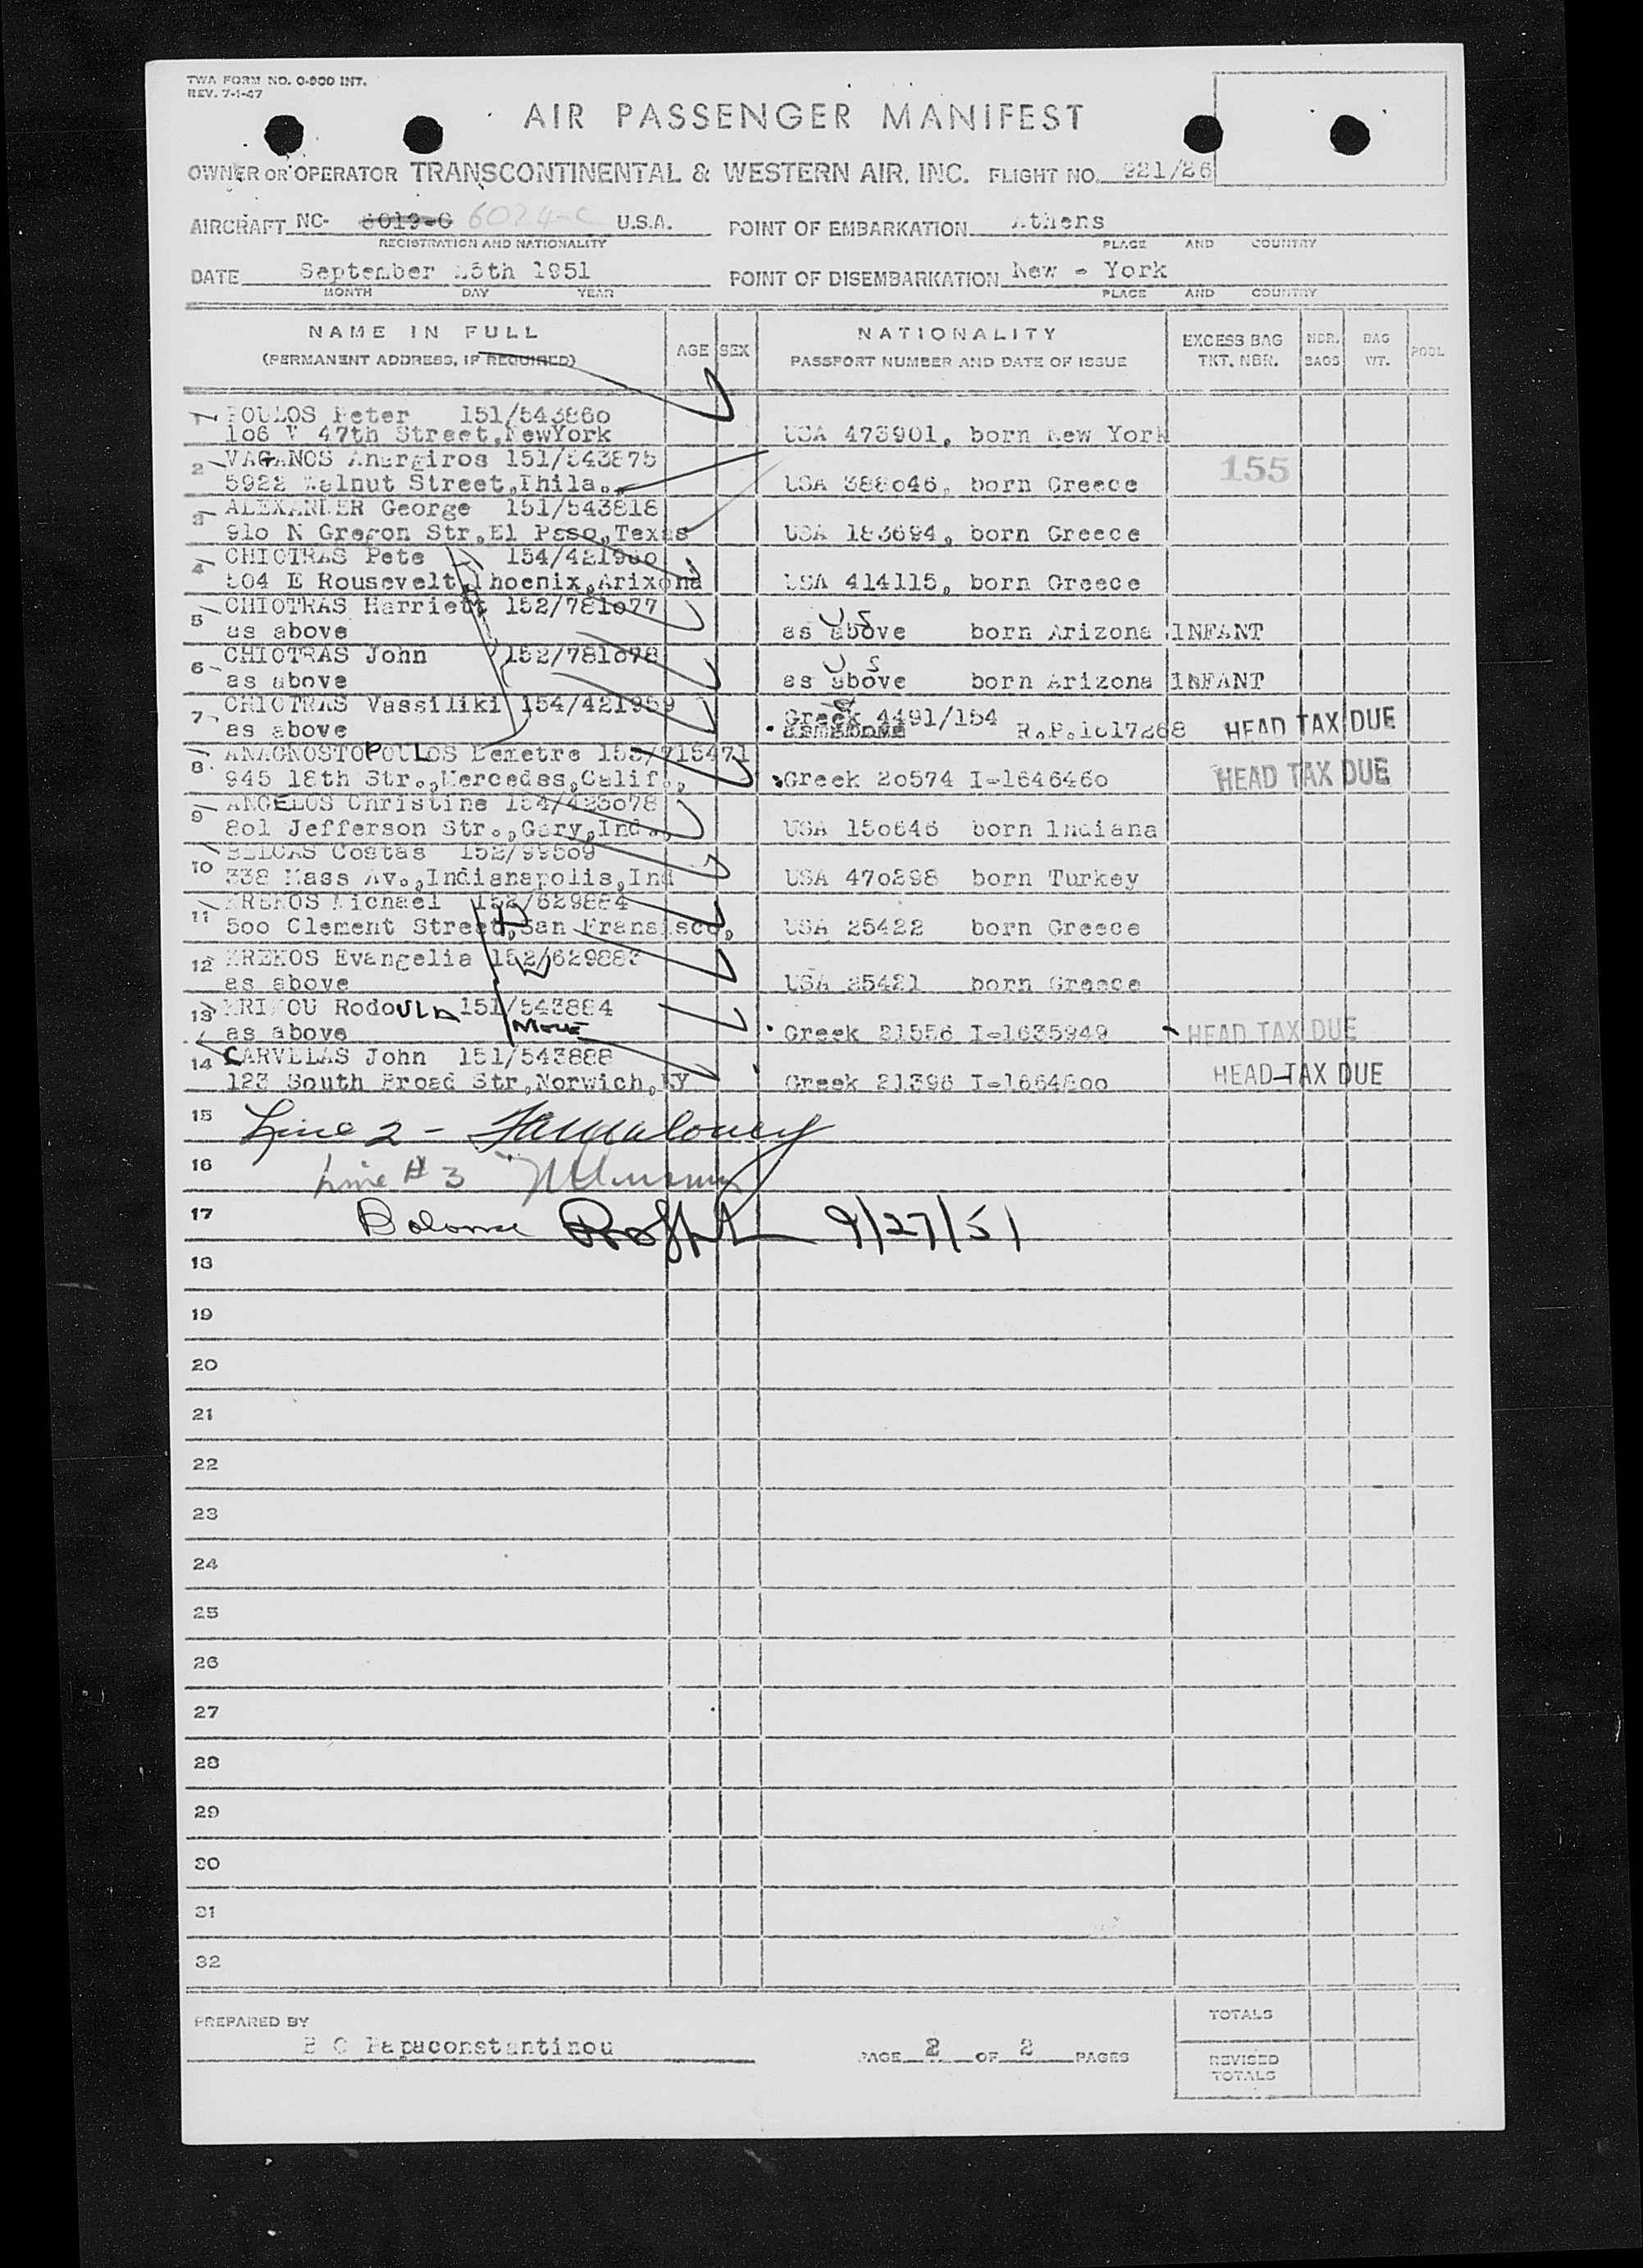 TWA FORM NO. O-900 INT.
REV. 7-1-47
AIR PASSENGER MANIFEST
OWNER OR OPERATOR TRANSCONTINENTAL & WESTERN AIR, INC. FLIGHT NO. 921/26
AIRCRAFT NC- 6019-C 6024-C U.S.A. POINT OF EMBARKATION Athens
REGISTRATION AND NATIONALITY PLACE AND COUNTRY
DATE September 1951 POINT OF DISEMBARKATION New - York
MONTH DAY YEAR PLACE AND COUNTRY
NAME IN FULL AGE SEX NATIONALITY EXCESS BAG NBR. BAG POOL
(PERMANENT ADDRESS, IF REQUIRED) PASSPORT NUMBER AND DATE OF ISSUE TKT. NBR. BAGS WT.
1 POULOS Peter 151/543860
106 W 47th Street,NewYork USA 473901, born New York
2 VAGANOS Anargiros 151/543875 155
5922 Walnut Street,Phila., USA 388o46, born Greece
3 ALEXANDER George 151/543818
91o N Gregon Str,El Paso,Texas USA 183694, born Greece
4 CHIOTRAS Pete 154/421960
504 E Rousevelt,Phoenix,Arixona USA 414115, born Greece
5 CHIOTRAS Harriett 152/781o77 U S
as above as above born Arizona INFANT
6 CHIOTRAS John 152/781o78 U S
as above as above born Arizona INFANT
7 CHIOTRAS Vassiliki 154/421959 Greek 4491/154
as above R.P.1617268 HEAD TAX DUE
8 ANAGNOSTOPOULOS Demetre 155/715471
945 18th Str.,Mercedss,Calif., Greek 2o574 I-164646o HEAD TAX DUE
9 ANGELOS Christine 154/425o78
8o1 Jefferson Str.,Gary,Ind., USA 15o646 born Indiana
10 Costas 152/995o9
338 Mass Av.,Indianapolis,Ind USA 47o298 born Turkey
11 KREKOS Michael 152/629884
500 Clement Street,San Fransisco, USA 25422 born Greece
12 KREKOS Evangelia 152/629883
as above USA 25421 born Greece
13 RodoULA 151/543884
as above Greek 21556 I-1635949 HEAD TAX DUE
14 CARVELAS John 151/543888
123 South Broad Str,Norwich,NY Greek 21396 I-16648oo HEAD TAX DUE
15 Line 2 -
16 Line # 3
17 Balance 9/27/51
18
19
20
21
22
23
24
25
26
27
28
29
30
31
32
PREPARED BY TOTALS
Papaconstantinou PAGE 2 OF 2 PAGES REVISED
TOTALS